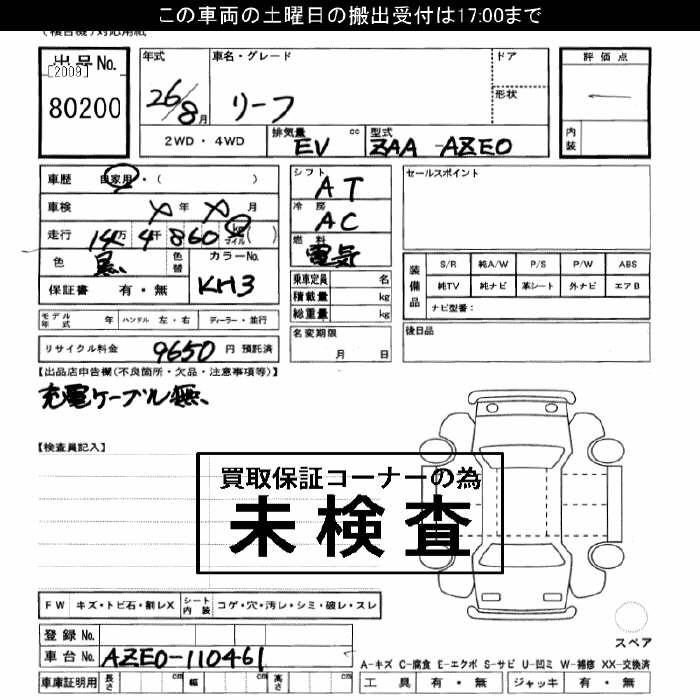 この車両の土曜日の搬出受付は17:00まで
出品No. 年式 車名・グレード ドア 評価点
[2009]
80200 26/8月 リーフ 形状
2WD・4WD 排気量 cc EV 型式 ZAA-AZE0 内装
車歴 自家用・( ) シフト AT セールスポイント
車検 メ年 メ月 冷房 AC
走行 14万 4千 860 km マイル ( ) 燃料 電気
色 黒 色替 カラーNo. KH3
装備品 S/R 純A/W P/S P/W ABS
保証書 有・無 乗車定員 名
純TV 純ナビ 革シート 外ナビ エアB
積載量 kg ナビ型番:
総重量 kg
モデル年式 年 ハンドル 左・右 ディーラー・並行 名変期限 月 日 後日品
リサイクル料金 9650 円 預託済
【出品店申告欄(不良箇所・欠品・注意事項等)】
充電ケーブル無、
【検査員記入】
買取保証コーナーの為
未検査
FW キズ・トビ石・割レX シート内装 コゲ・穴・汚レ・シミ・破レ・スレ
登録No.
スペア
車台No. AZE0-110461
A-キズ C-腐食 E-エクボ S-サビ U-凹ミ W-補修 XX-交換済
車庫証明用 長さ cm 幅 cm 高さ cm 工具 有・無 ジャッキ 有・無